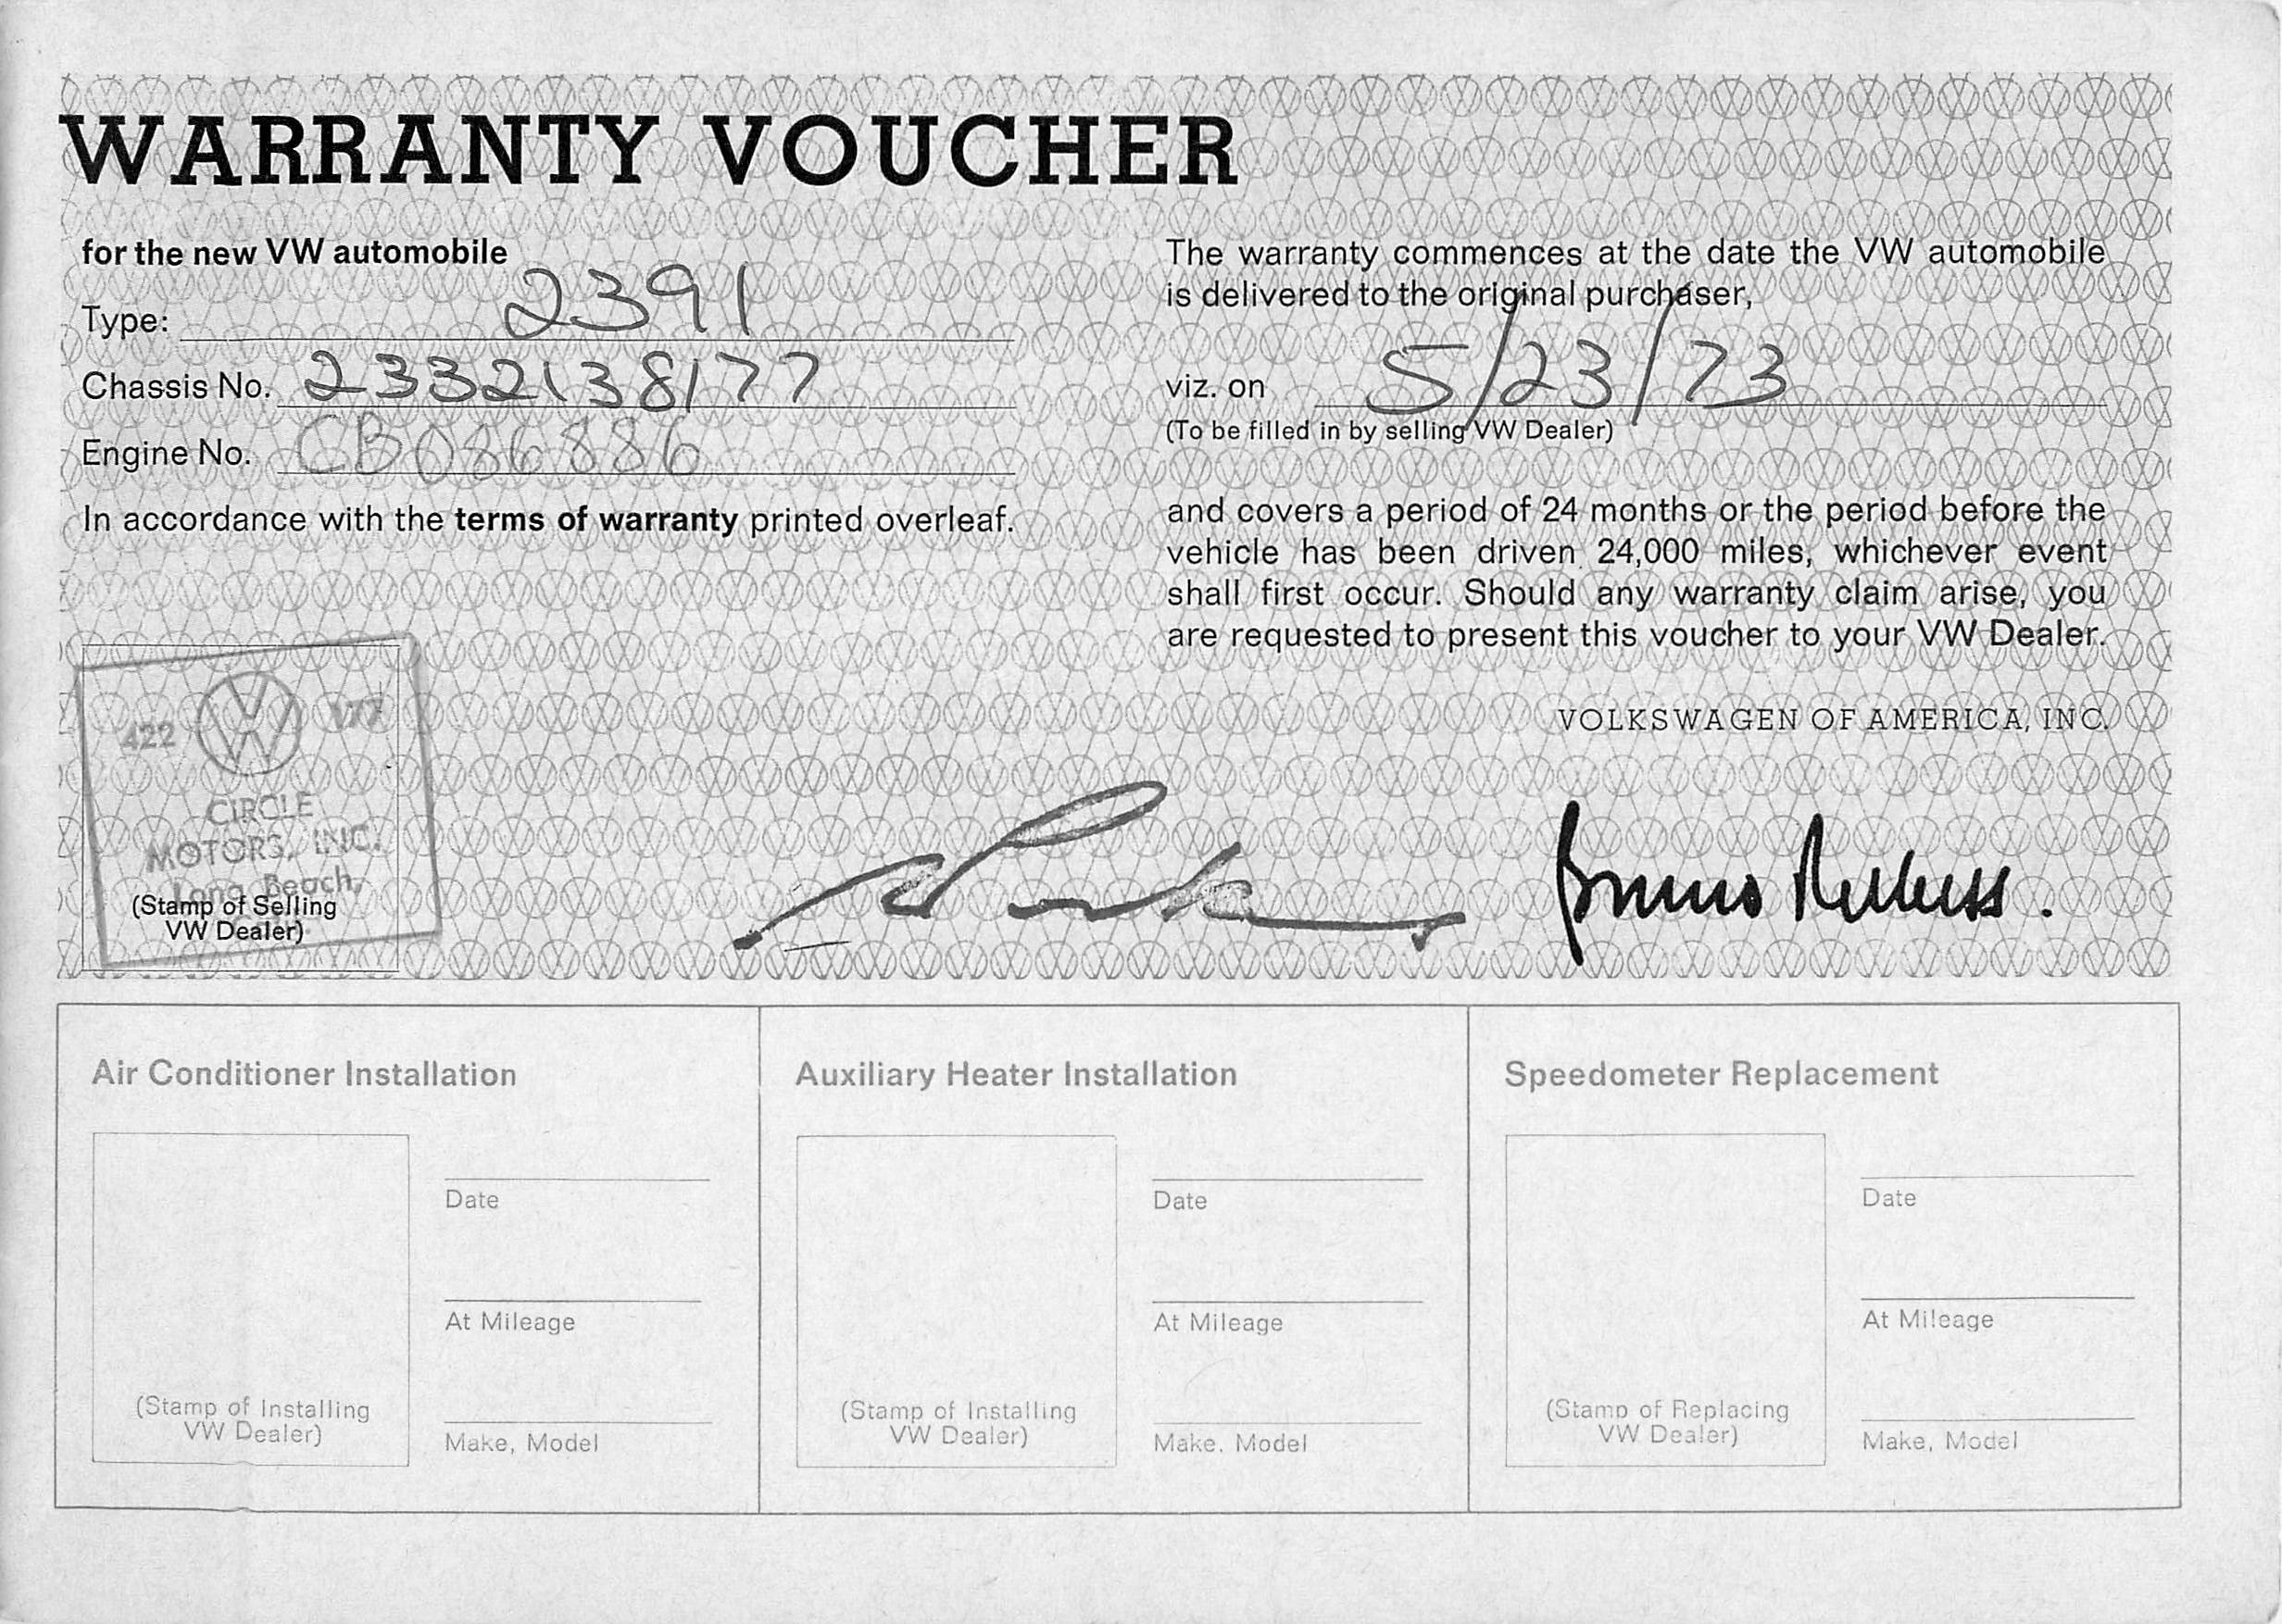 WARRANTY VOUCHER
for the new VW automobile
Type: 2391
Chassis No. 2332138177
Engine No. CB086886
In accordance with the terms of warranty printed overleaf.
The warranty commences at the date the VW automobile
is delivered to the original purchaser,
viz. on 5/23/73
(To be filled in by selling VW Dealer)
and covers a period of 24 months or the period before the
vehicle has been driven 24,000 miles, whichever event
shall first occur. Should any warranty claim arise, you
are requested to present this voucher to your VW Dealer.
VOLKSWAGEN OF AMERICA, INC.
422 VW 177
CIRCLE
MOTORS, INC.
Long Beach,
(Stamp of Selling
VW Dealer)
Air Conditioner Installation
Date
At Mileage
Make, Model
(Stamp of Installing
VW Dealer)
Auxiliary Heater Installation
Date
At Mileage
Make, Model
(Stamp of Installing
VW Dealer)
Speedometer Replacement
Date
At Mileage
Make, Model
(Stamp of Replacing
VW Dealer)